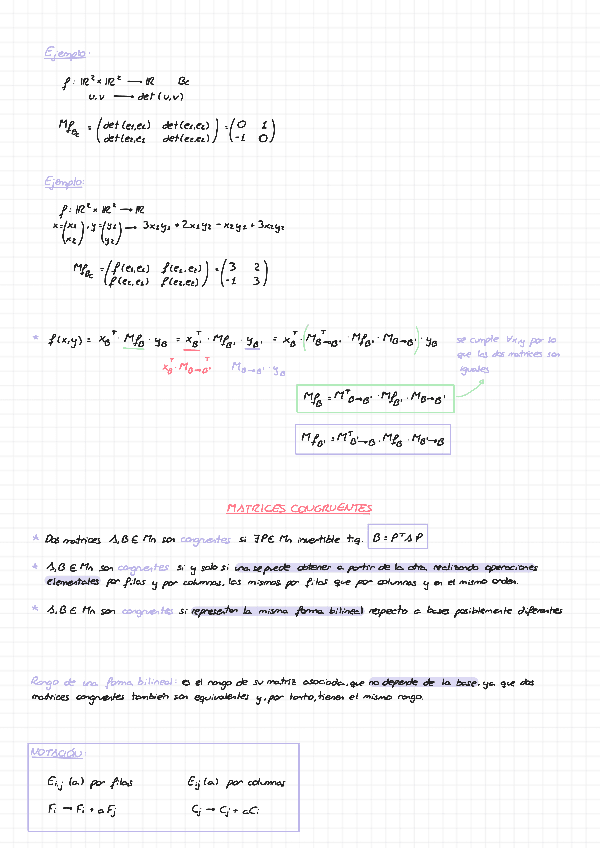 Ejemplo:
f: ℝ² × ℝ² → ℝ   Bc
u,v → det(u,v)
Mf_Bc = (det(e1,e1) det(e1,e2)) = (0 1)
(det(e2,e1) det(e2,e2)) (-1 0)
Ejemplo:
f: ℝ² × ℝ² → ℝ
x=(x1 x2), y=(y1 y2) → 3x1y1 + 2x1y2 - x2y1 + 3x2y2
Mf_Bc = (f(e1,e1) f(e1,e2)) = (3 2)
(f(e2,e1) f(e2,e2)) (-1 3)
* f(x,y) = x_B^T · Mf_B · y_B = x_B'^T · Mf_B' · y_B' = x_B^T · (M_B→B'^T · Mf_B' · M_B→B') · y_B
se cumple ∀x,y por lo
que las dos matrices son
iguales
x_B^T · M_B→B'^T   M_B→B' · y_B
Mf_B = M^T_B→B' · Mf_B' · M_B→B'
Mf_B' = M^T_B'→B · Mf_B · M_B'→B
MATRICES CONGRUENTES
* Dos matrices A,B ∈ Mn son congruentes si ∃P ∈ Mn invertible t.q. B = P^T A P
* A,B ∈ Mn son congruentes si y solo si una se puede obtener a partir de la otra, realizando operaciones
elementales por filas y por columnas, las mismas por filas que por columnas y en el mismo orden.
* A,B ∈ Mn son congruentes si representan la misma forma bilineal respecto a bases posiblemente diferentes
Rango de una forma bilineal: es el rango de su matriz asociada, que no depende de la base, ya que dos
matrices congruentes también son equivalentes y, por tanto, tienen el mismo rango.
NOTACIÓN:
Ei,j (a) por filas   Eij (a) por columnas
Fi → Fi + a Fj   Cj → Cj + aCi